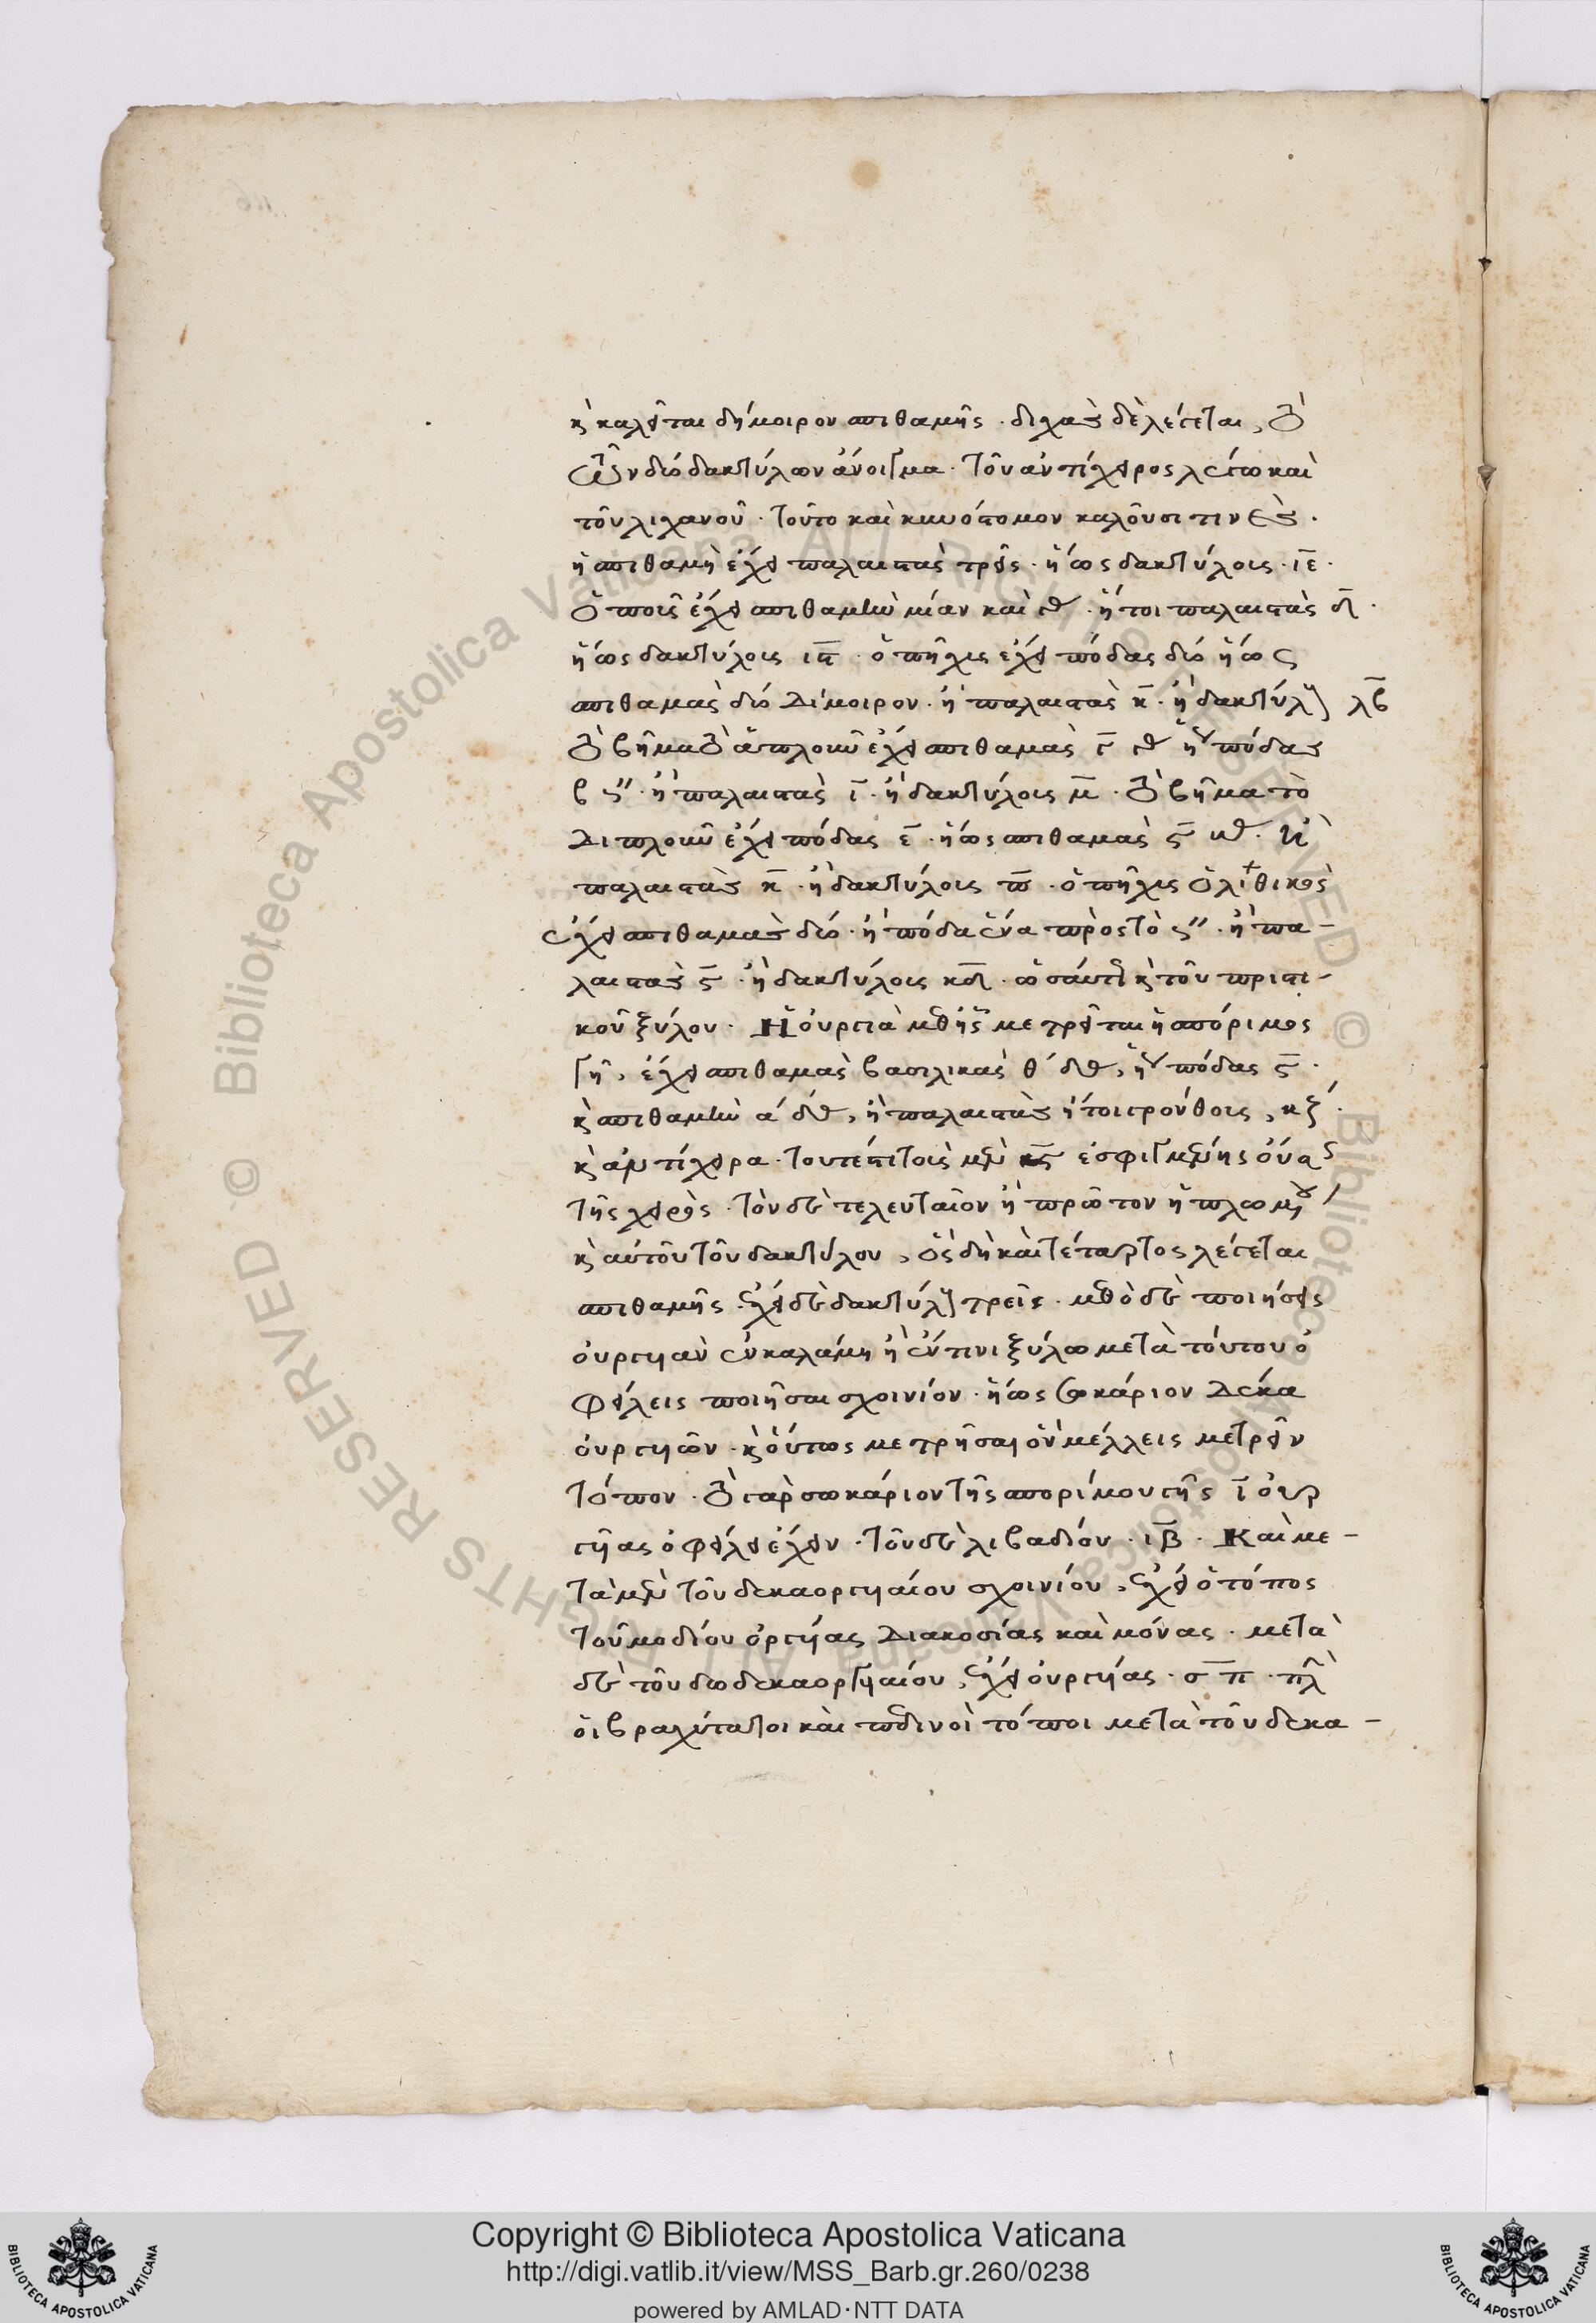 κ καλεῖται δήμοιρον σπιθαμῆς · διχὰς δὲ λέγεται, τὸ
τῶν δύο δακτύλων ἄνοιγμα · τοῦ ἀντίχειρος λέγω καὶ
τοῦ λιχανοῦ · τοῦτο καὶ κυνόστομον καλοῦσί τινες ·
ἡ σπιθαμὴ ἔχει παλαιστὰς τρεῖς · ἤγως δακτύλοις · ιε ·
ὁ ποῦς ἔχει σπιθαμὴν μίαν καὶ · ἤτοι παλαιστὰς δ ·
ἤγως δακτύλοις ις · ὁ πῆχις ἔχει πόδας δύο ἤγως
σπιθαμὰς δύο δίμοιρον · ἢ παλαιστὰς η · ἢ δακτύλους λβ
τὸ βῆμα τὸ ἁπλοῦν ἔχει σπιθαμὰς γ ἤγουν πόδας
β ς″ · ἢ παλαιστὰς ι · ἢ δακτύλοις μ · τὸ βῆμα τὸ
διπλοῦν ἔχει πόδας ε · ἤγως σπιθαμὰς ς · ἢ
παλαιστὰς κ · ἢ δακτύλοις π · ὁ πῆχις ὁ λιθικὸς
ἔχει σπιθαμὰς δύο · ἢ πόδα ἕνα πρὸς τὸ ς″ · ἢ πα-
λαιστὰς ς · ἢ δακτύλοις κδ · ὡσαύτως κ τοῦ πριστι-
κοῦ ξύλου · Ἡ οὐργιὰ μεθ' ἧς μετρεῖται ἡ σπόριμος
γῆ, ἔχει σπιθαμὰς βασιλικὰς θ δ, ἤγουν πόδας ς ·
κ σπιθαμὴν α δ, ἢ παλαιστὰς ἤτοι γρόνθοις, κζ ·
κ ἀντίχειρα · τουτέστι τοὺς μὲν κς ἐσφιγμένης οὔσης
τῆς χειρὸς · τὸν δὲ τελευταῖον ἢ πρῶτον ἡπλωμένου
κ αὐτοῦ τοῦ δακτύλου, ὃς δὴ καὶ τέταρτος λέγεται
σπιθαμῆς · ἔχει δὲ δακτύλους τρεῖς · μεθ' ὃ δὲ ποιήσεις
οὐργυὰν ἐν καλάμη ἢ ἔν τινι ξύλω μετὰ τούτου ὀ
φείλεις ποιῆσαι σχοινίον · ἤγως σωκάριον δέκα
οὐργυῶν · κ οὕτως μετρῆσαι ὃν μέλλεις μετρεῖν
τόπον · τὸ γὰρ σωκάριον τῆς σπορίμου γῆς ι οὐρ
γυας ὀφείλει ἔχειν · τοῦ δὲ λιβαδίου · ιβ · Καὶ με-
τὰ μὲν τοῦ δεκαοργυαίου σχοινίου, ἔχει ὁ τόπος
τοῦ μοδίου ὀργύας διακοσίας καὶ μόνας · μετὰ
δὲ τοῦ δωδεκαοργυαίου, ἔχει οὐργύας · σπ · πλὴν
οἱ βραχύτατοι καὶ πεδινοὶ τόποι μετὰ τοῦ δεκα-
Copyright © Biblioteca Apostolica Vaticana
http://digi.vatlib.it/view/MSS_Barb.gr.260/0238
powered by AMLAD·NTT DATA